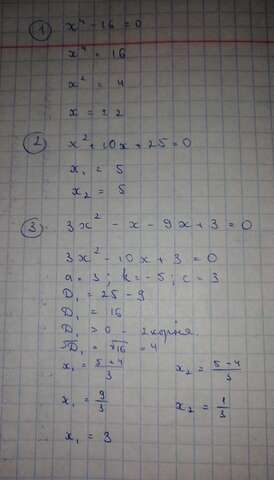 1 x⁴ - 16 = 0
x⁴ = 16
x² = 4
x = ± 2
2 x² + 10x + 25 = 0
x₁ = 5
x₂ = 5
3 3x² - x - 9x + 3 = 0
3x² - 10x + 3 = 0
a = 3 ; k = -5 ; c = 3
D₁ = 25 - 9
D₁ = 16
D₁ > 0 - 2 корня.
√D₁ = √16 = 4
x₁ = (5+4)/3 x₂ = (5-4)/3
x₁ = 9/3 x₂ = 1/3
x₁ = 3